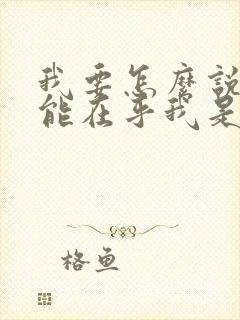 我要怎麼說
能在乎我是
格魚